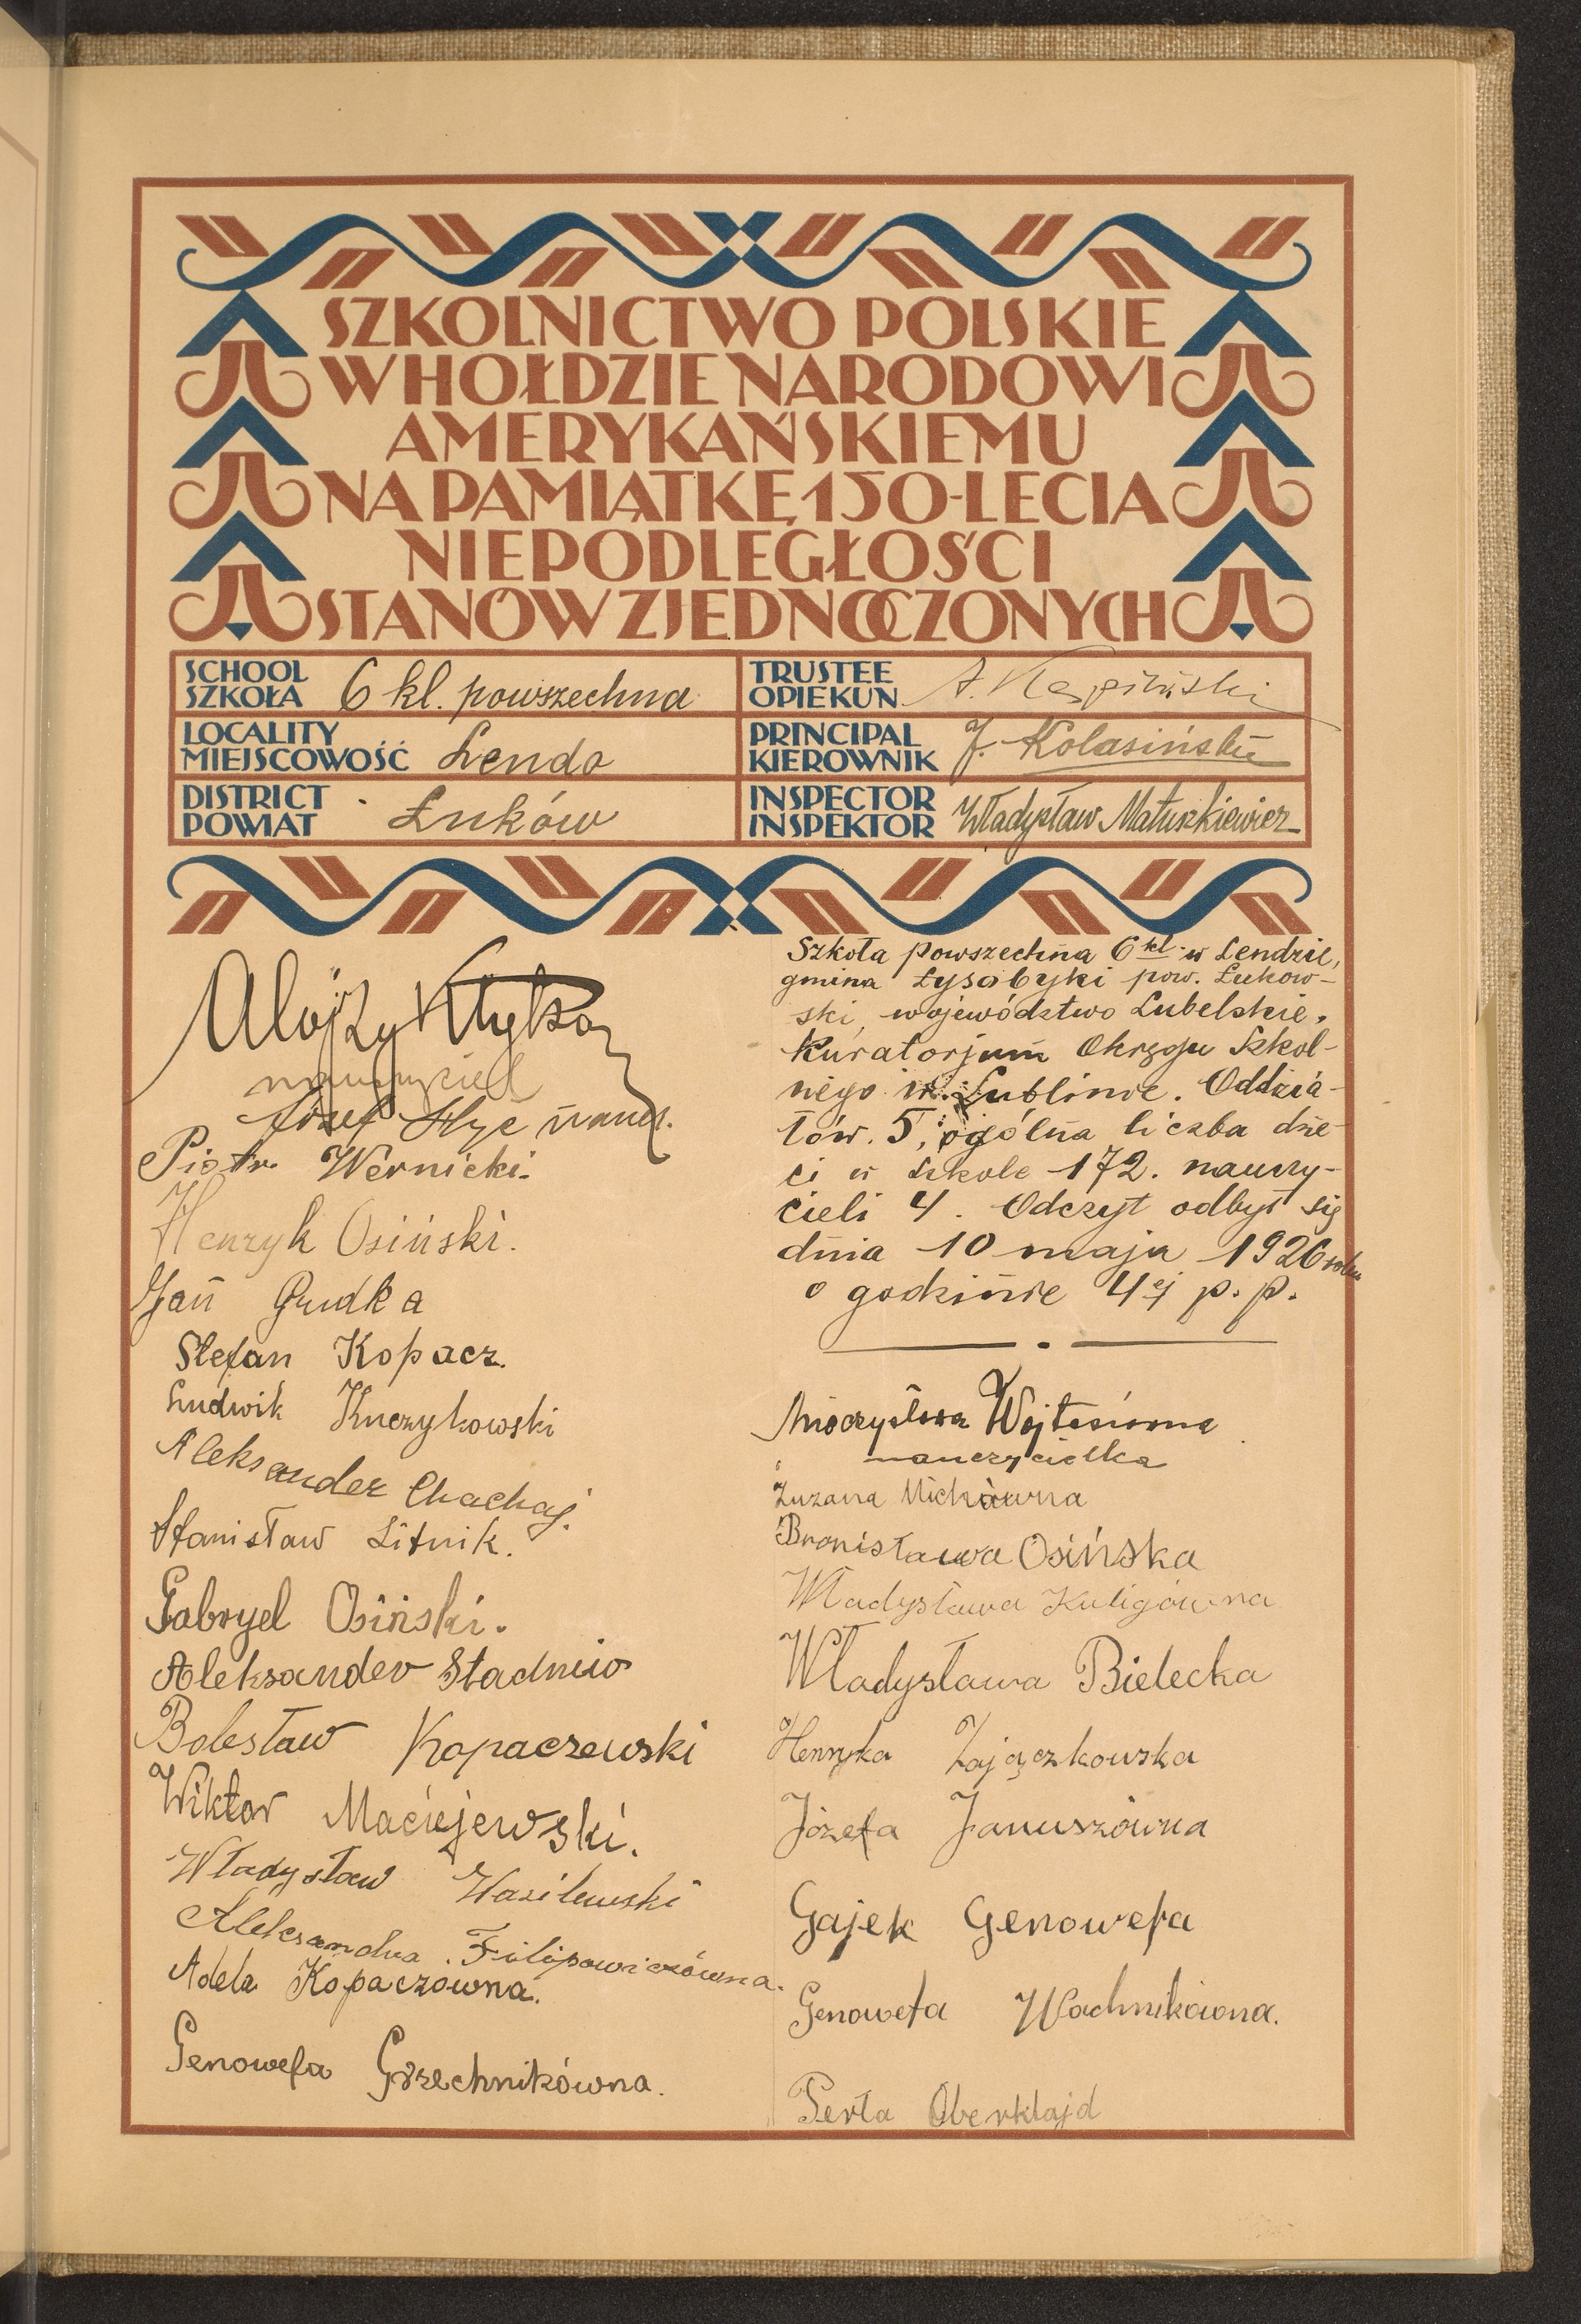 SZKOLNICTWO POLSKIE
W HOŁDZIE NARODOWI
AMERYKAŃSKIEMU
NA PAMIĄTKĘ 150-LECIA
NIEPODLEGŁOŚCI
STANÓW ZJEDNOCZONYCH
SCHOOL
SZKOŁA 6 kl. powszechna
TRUSTEE
OPIEKUN A.
LOCALITY
MIEJSCOWOŚĆ Lendo
PRINCIPAL
KIEROWNIK J. Kolasiński
DISTRICT
POWIAT Łuków
INSPECTOR
INSPEKTOR Władysław Matuszkiewicz
Alojzy
nauczyciel
Józef Hyc naucz.
Piotr Wernicki.
Henryk Osiński.
Jan Grudka
Stefan Kopacz.
Ludwik Kuczykowski
Aleksander Chachaj.
Stanisław Litnik.
Gabryel Osiński.
Aleksander Stadnik
Bolesław Kopaczewski
Wiktor Maciejewski.
Władysław Wasilewski
Aleksandra Filipowiczówna.
Adela Kopaczówna.
Genowefa Grzechnikówna.
Szkoła powszechna 6 kl. w Lendzie,
gmina Łysobyki pow. Łukow-
ski, województwo Lubelskie.
Kuratorjum Okręgu Szkol-
nego w Lublinie. Oddzia-
łów. 5, ogólna liczba dzie-
ci w szkole 172. nauczy-
cieli 4. Odczyt odbył się
dnia 10 maja 1926 roku
o godzinie 4ej p. p.
Mieczysława Wojtasiówna
nauczycielka
Zuzana Michówna
Bronisława Osińska
Władysława Kuligówna
Władysława Bielecka
Henryka Zajączkowska
Józefa Januszówna
Gajek Genowefa
Genowefa Wachnikówna.
Perła Oberklajd